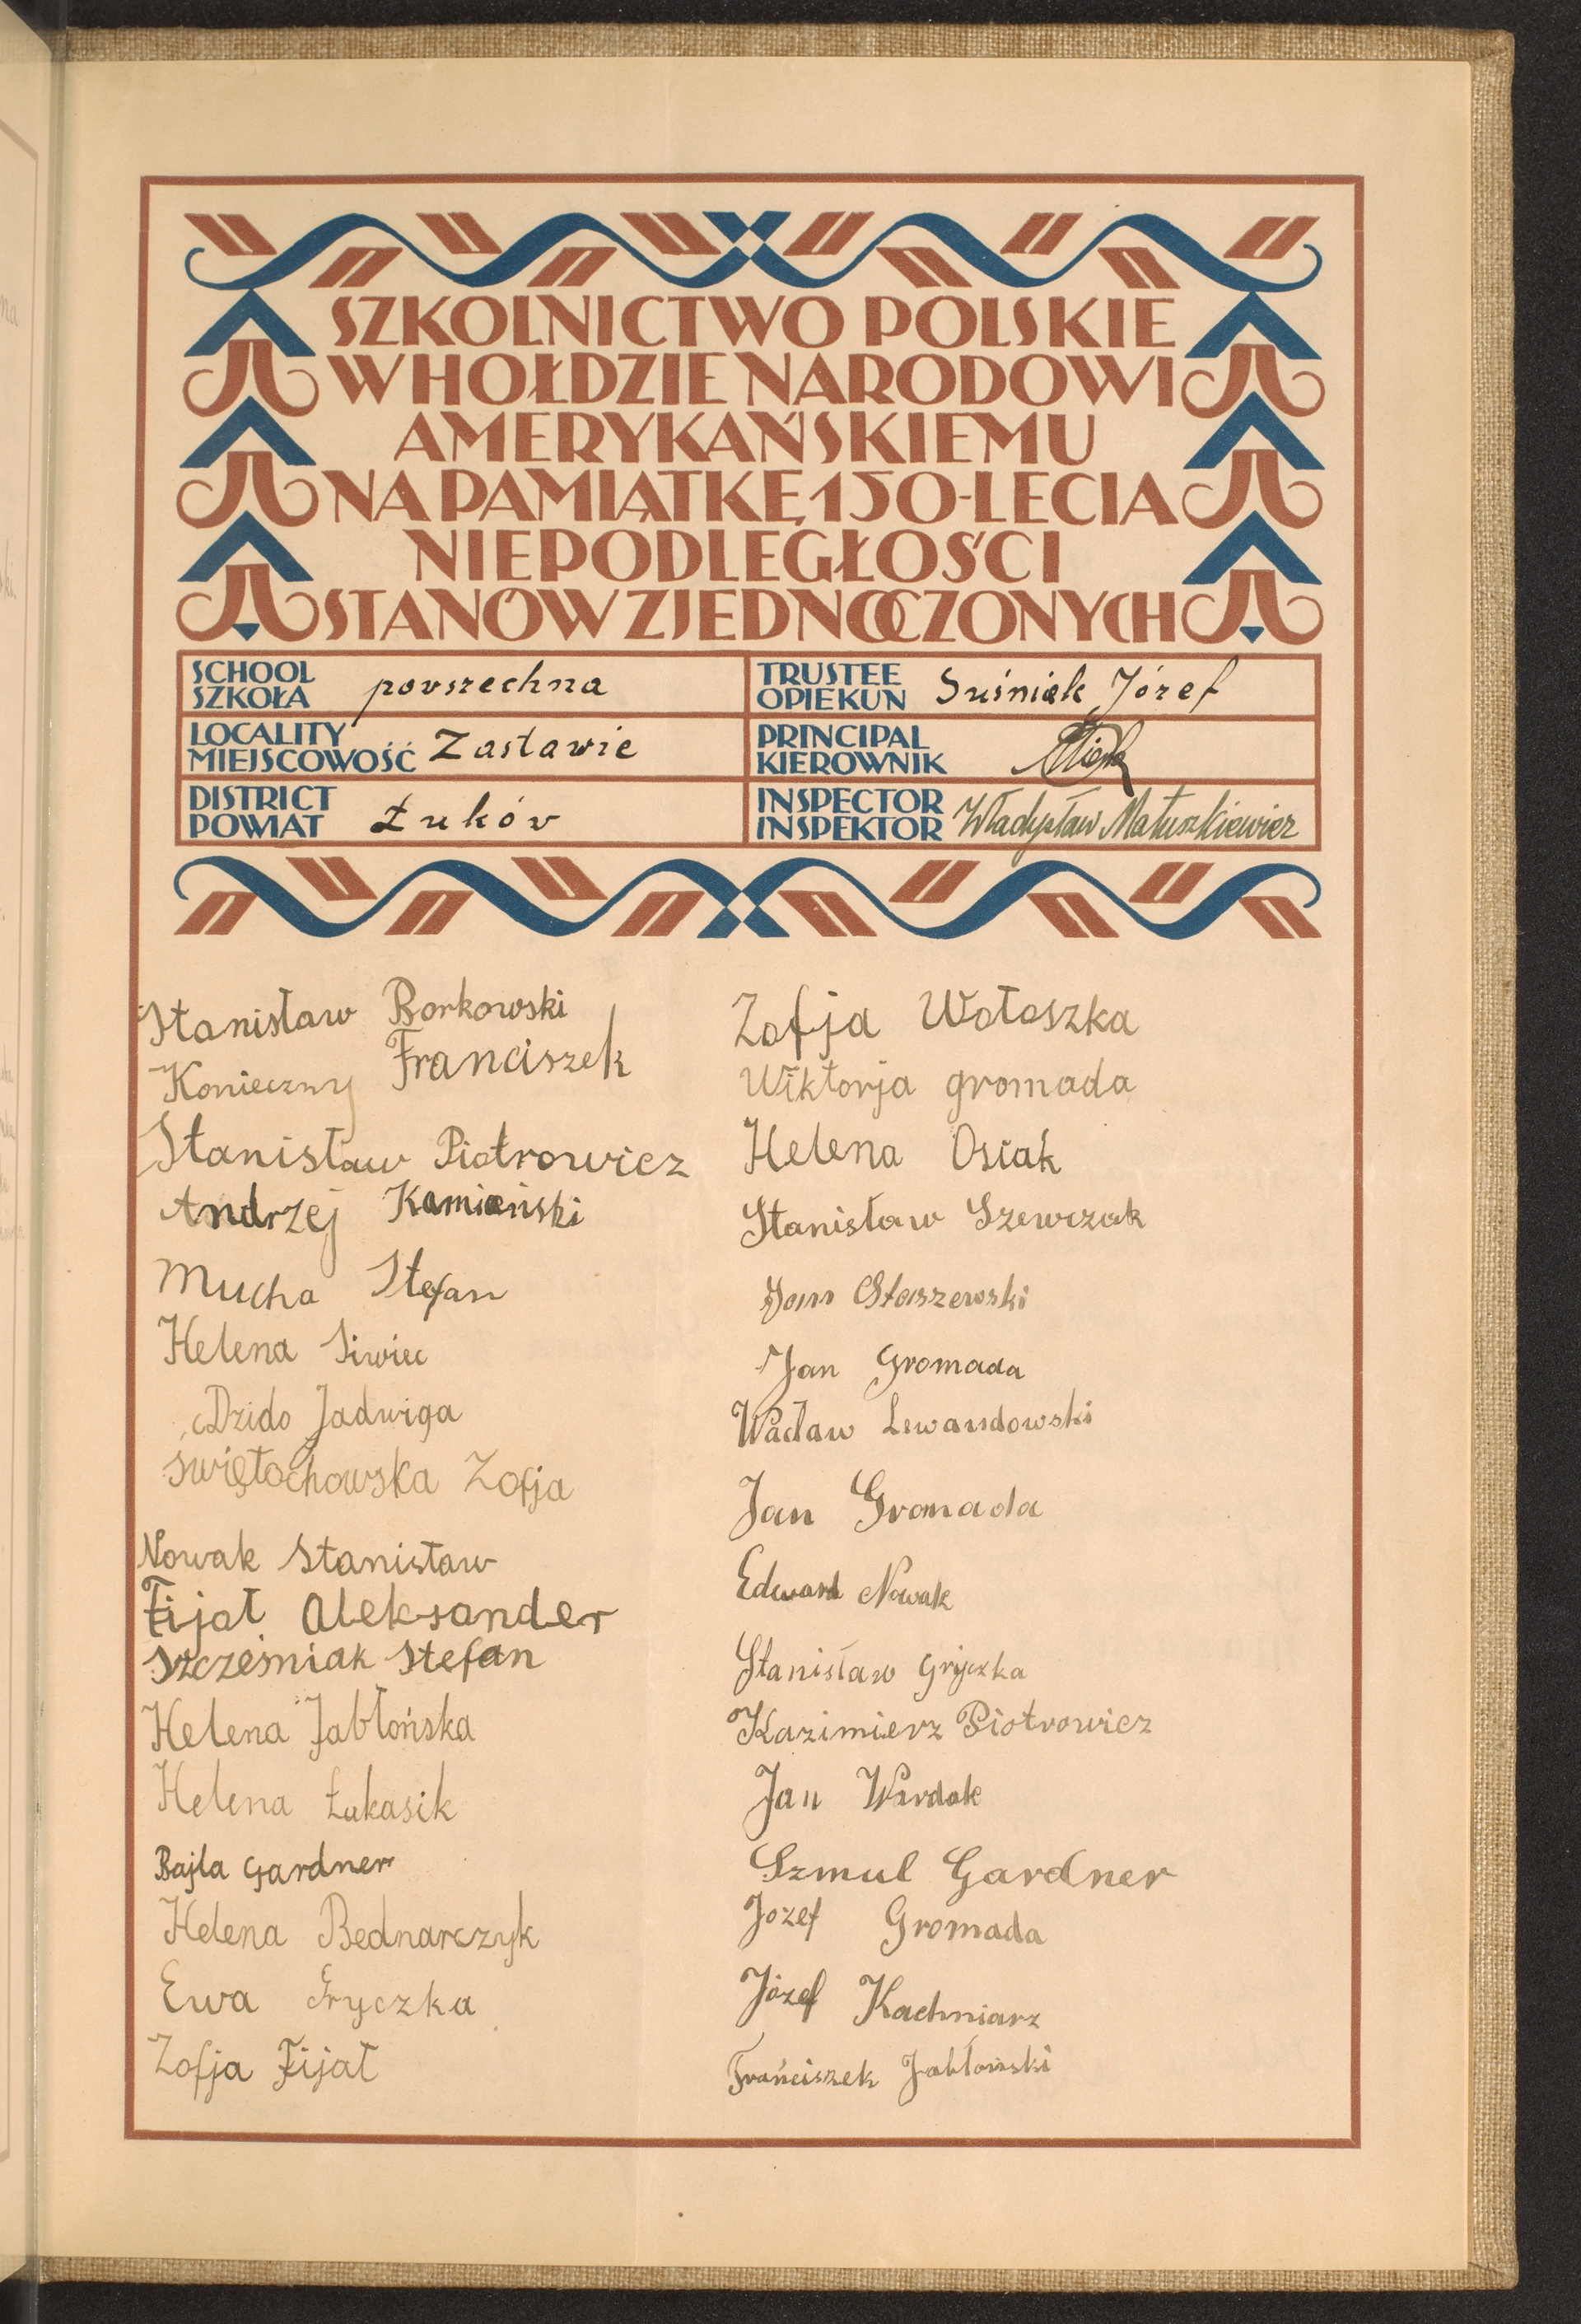 SZKOLNICTWO POLSKIE
W HOŁDZIE NARODOWI
AMERYKAŃSKIEMU
NA PAMIĄTKĘ 150-LECIA
NIEPODLEGŁOŚCI
STANÓW ZJEDNOCZONYCH
SCHOOL
SZKOŁA powszechna
TRUSTEE
OPIEKUN Suśniak Józef
LOCALITY
MIEJSCOWOŚĆ Zastawie
PRINCIPAL
KIEROWNIK
DISTRICT
POWIAT Łuków
INSPECTOR
INSPEKTOR Władysław Matuszkiewicz
Stanisław Borkowski
Konieczny Franciszek
Stanisław Piotrowicz
Andrzej Kamieński
Mucha Stefan
Helena Siwiec
Dzido Jadwiga
Świętochowska Zofja
Nowak Stanisław
Fijał Aleksander
Szcześniak Stefan
Helena Jabłońska
Helena Łukasik
Bajla Gardner
Helena Bednarczyk
Ewa Gryczka
Zofja Fijał
Zofja Wołoszka
Wiktorja gromada
Helena Osiak
Stanisław Szewczak
Jan Staszewski
Jan Gromada
Wacław Lewandowski
Jan Gromada
Edward Nowak
Stanisław Gryczka
Kazimierz Piotrowicz
Jan Wardak
Szmul Gardner
Jozef Gromada
Józef Kachniarz
Franciszek Jabłoński